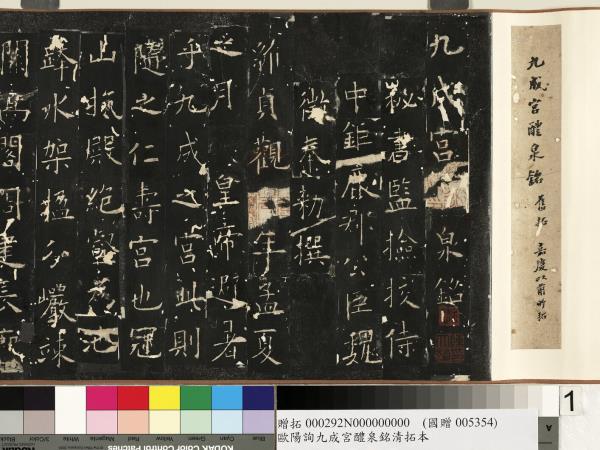 九成宮醴泉銘 舊拓 嘉慶以前所拓
九成宮泉銘
秘書監撿挍侍
中鉅鹿郡公臣魏
徵奉勅撰
貞觀年孟夏
之月 皇帝避暑
乎九成之宮此則
隨之仁壽宮也冠
山抗殿絕壑為池
跨水架楹分巖竦
闕高閣周建長廊
贈拓 000292N000000000 (國贈 005354)
歐陽詢九成宮醴泉銘清拓本
1
A
KODAK Color Control Patches
Blue Cyan Green Yellow Red Magenta White 3/Color Black